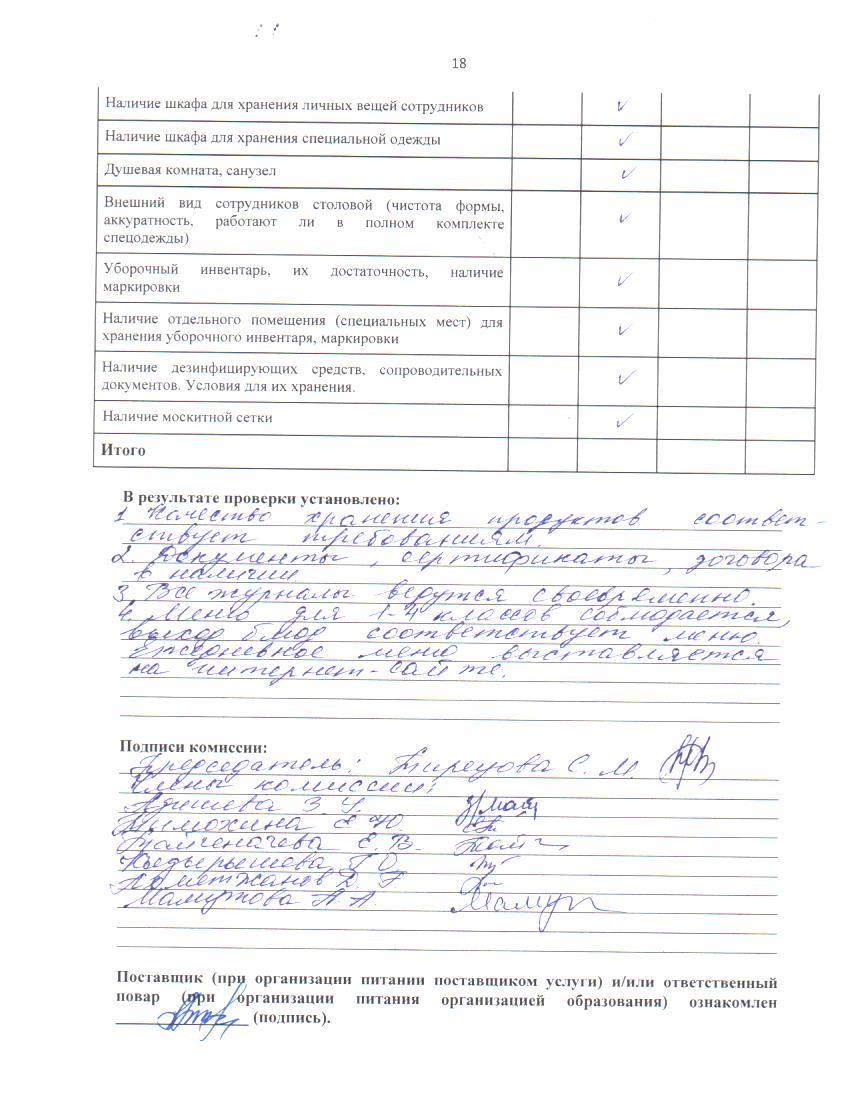 18
Наличие шкафа для хранения личных вещей сотрудников ✓
Наличие шкафа для хранения специальной одежды ✓
Душевая комната, санузел ✓
Внешний вид сотрудников столовой (чистота формы,
аккуратность, работают ли в полном комплекте ✓
спецодежды)
Уборочный инвентарь, их достаточность, наличие ✓
маркировки
Наличие отдельного помещения (специальных мест) для ✓
хранения уборочного инвентаря, маркировки
Наличие дезинфицирующих средств, сопроводительных ✓
документов. Условия для их хранения.
Наличие москитной сетки ✓
Итого
В результате проверки установлено:
1 Качество хранения продуктов соответ-
ствует требованиям.
2. Документы, сертификаты, договора
в наличии
3. Все журналы ведутся своевременно.
4. Меню для 1-4 классов соблюдается,
выход блюд соответствует меню.
Ежедневное меню выставляется
на интернет-сайте.
Подписи комиссии:
Председатель: С. М.
Члены комиссии:
З. У.
Тимохина Е. Ю.
Е. В.
Г. О.
Ахметжанов Д. Г.
А. А.
Поставщик (при организации питании поставщиком услуги) и/или ответственный
повар (при организации питания организацией образования) ознакомлен
(подпись).